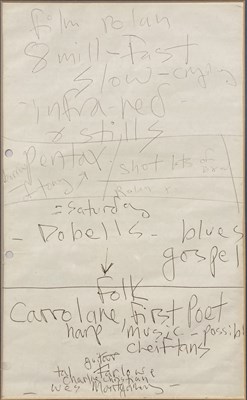 film rolan
8 mill-fast
slow-cryp
infra-red
& stills
Pentax shot lots of
= Saturday
- Dobells - blues
gospel
Folk
Carrolane, First Poet
harp music - possibl
chieftans
guitar
tal farlowe
charlie christian
- wes montgomery -